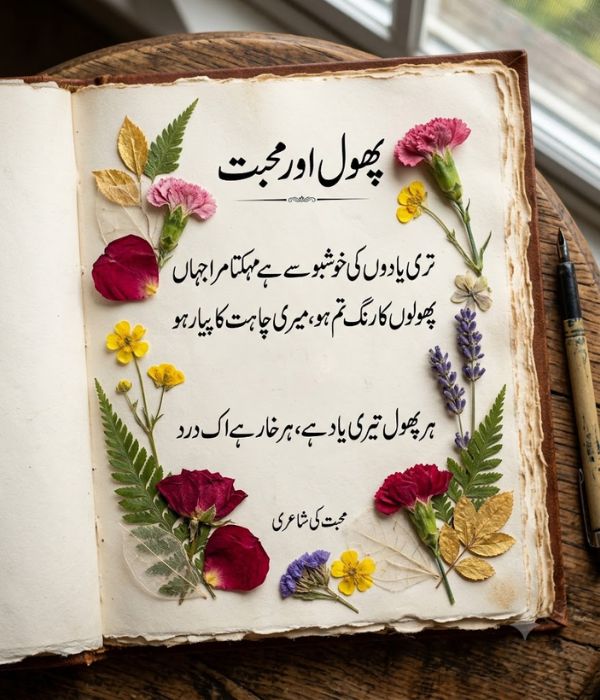 پھول اور محبت
تری یادوں کی خوشبو سے ہے مہکتا مرا جہاں
پھولوں کا رنگ تم ہو، میری چاہت کا پیار ہو
ہر پھول تیری یاد ہے، ہر خار ہے اک درد
محبت کی شاعری